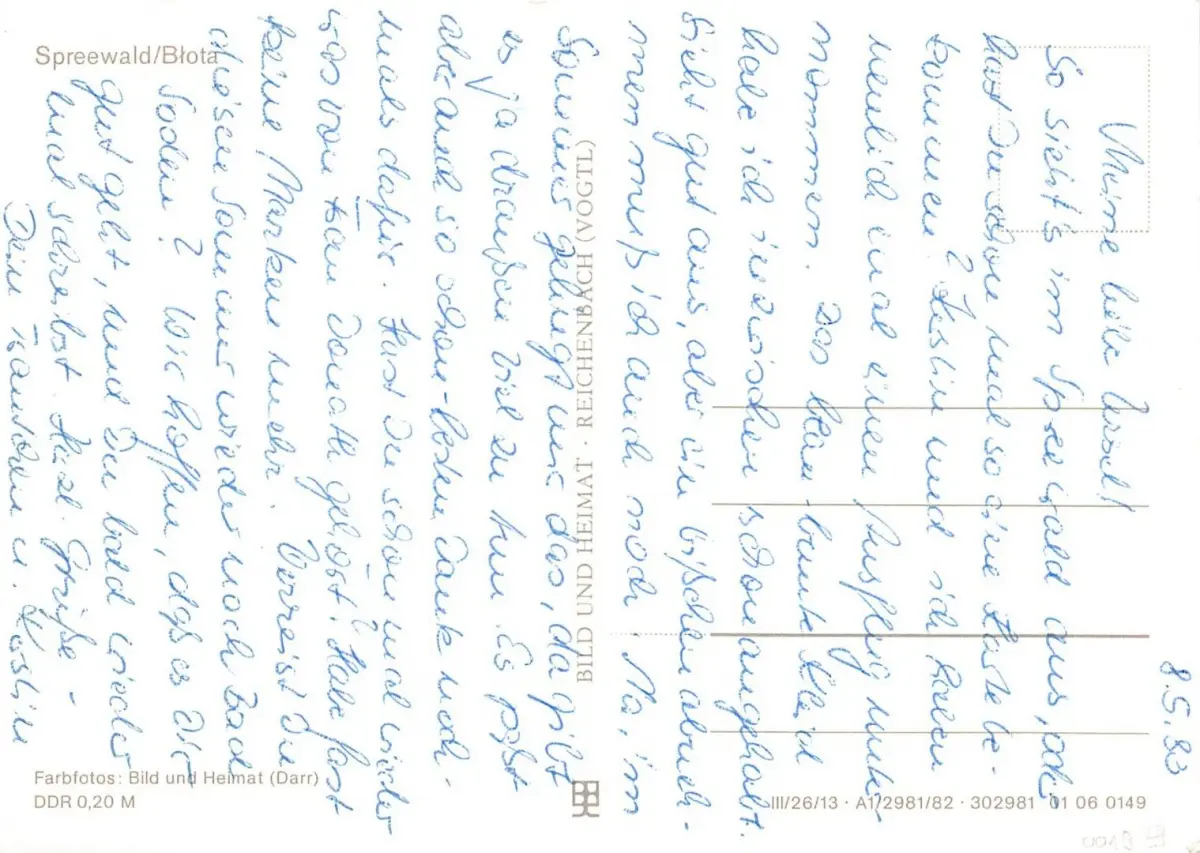 Spreewald/Błota
8.5.83
Meine liebe Ursel!
So sieht's im Spreewald aus, oder
hast Du schon mal so eine Karte be-
kommen? Kerstin und ich haben
neulich mal einen Ausflug unter-
nommen. Das blau-bunte Kleid
habe ich inzwischen schon angehabt.
Sieht gut aus, aber ein bißchen abneh-
men muß ich auch noch. Na, im
Sommer gelingt mir das, da gibt
es ja draußen viel zu tun. Es paßt
aber auch so schon - besten Dank noch-
mals dafür. Hast Du schon mal wieder
was von Donath gehört? Habe fast
keine Marken mehr. Verreist Du
diesen Sommer wieder nach Bad
Soden? Wir hoffen, daß es Dir
gut geht, und Du bald wieder
mal schreibst. Herzl. Grüße -
Dein u. Kerstin
BILD UND HEIMAT · REICHENBACH (VOGTL)
Farbfotos: Bild und Heimat (Darr)
DDR 0,20 M
III/26/13 · A1/2981/82 · 302981 01 06 0149